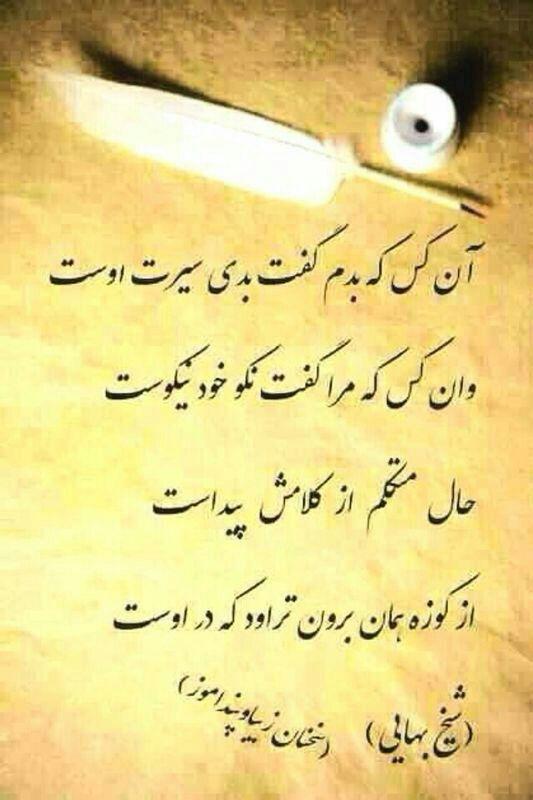 آن کس که بدم گفت بدی سیرت اوست
وان کس که مرا گفت نکو خود نیکوست
حال متکلم از کلامش پیداست
از کوزه همان برون تراود که در اوست
(شیخ بهایی) (سخنان زیبا و پندآموز)